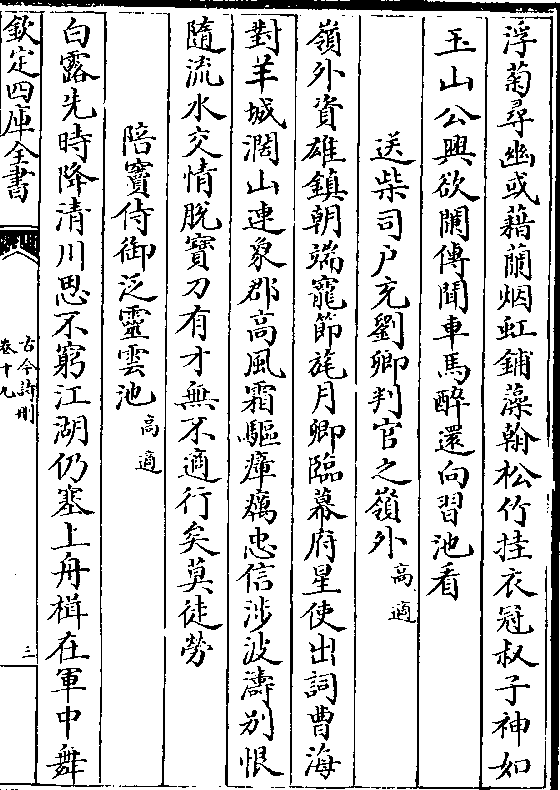 浮菊尋幽或藉蘭烟虹鋪藻翰松竹挂衣冠叔子神如
玉山公興欲闌傳聞車馬醉還向習池看
送柴司户充劉卿判官之嶺外 高適
嶺外資雄鎮朝端寵節旄月卿臨幕府星使出詞曹海
對羊城濶山連象郡高風霜驅瘴癘忠信涉波濤别恨
隨流水交情脱寶刀有才無不適行矣莫徒勞
陪竇侍御泛靈雲池 高適
白露先時降清川思不窮江湖仍塞上舟楫在軍中舞
欽定四庫全書
古今詩刪
卷十九
三